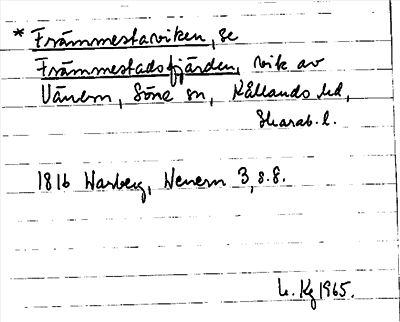 * Främmestaviken, se
Främmestadsfjärden, vik av
Vänern, Söne sn, Kållands hd,
Skarab. l.
1816 Warberg, Wenern 3, s. 8.
L. Kg 1965.